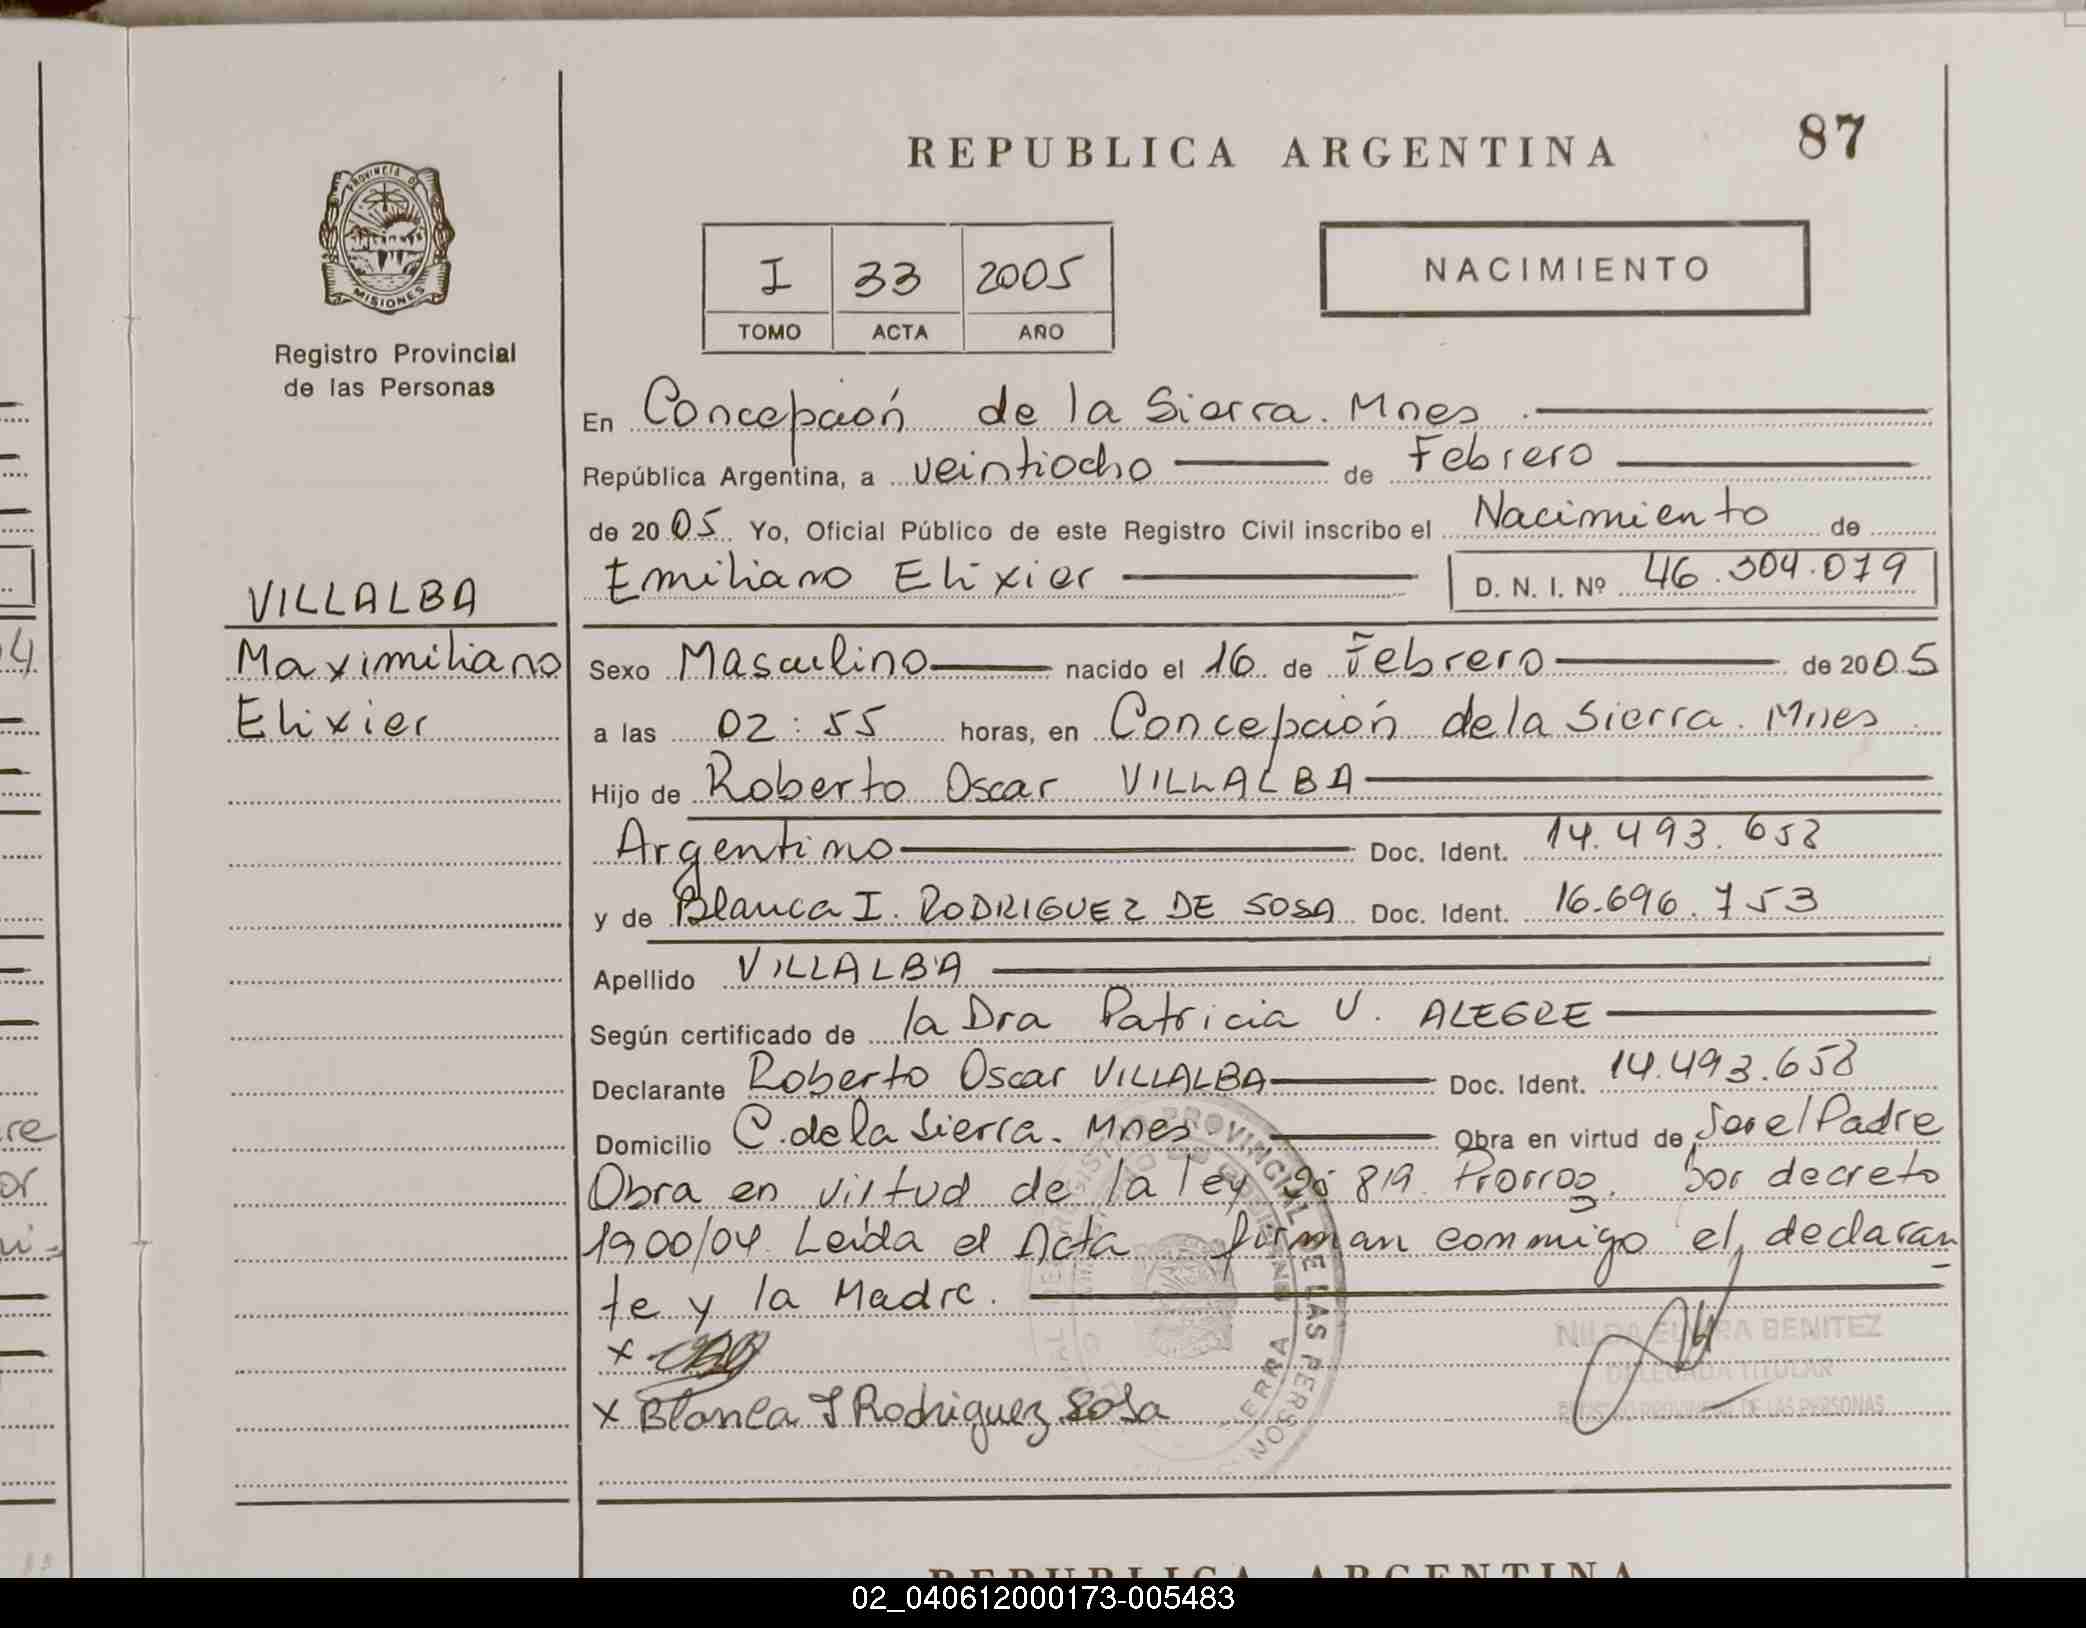 REPUBLICA ARGENTINA
87
PROVINCIA DE
MISIONES
Registro Provincial
de las Personas
I 33 2005
TOMO ACTA AÑO
NACIMIENTO
En Concepción de la Sierra. Mnes.
República Argentina, a veintiocho de Febrero
de 2005 Yo, Oficial Público de este Registro Civil inscribo el Nacimiento de
Emiliano Elixier D. N. I. Nº 46.304.079
VILLALBA
Maximiliano
Elixier
Sexo Masculino nacido el 16 de Febrero de 2005
a las 02:55 horas, en Concepción de la Sierra. Mnes
Hijo de Roberto Oscar VILLALBA
Argentino Doc. Ident. 14.493.658
y de Blanca I. RODRIGUEZ DE SOSA Doc. Ident. 16.696.753
Apellido VILLALBA
Según certificado de la Dra Patricia V. ALEGRE
Declarante Roberto Oscar VILLALBA Doc. Ident. 14.493.658
Domicilio C. de la Sierra. Mnes Obra en virtud de Ser el Padre
Obra en virtud de la ley 25 819. Prorrog. por decreto
1900/04. Leída el Acta firman conmigo el declaran
te y la Madre.
x
x Blanca I Rodriguez Sosa
PROVINCIAL DE LAS PERSON
IERRA
NILDA ELVIRA BENITEZ
DELEGADA TITULAR
REGISTRO PROVINCIAL DE LAS PERSONAS
REPUBLICA ARGENTINA
02_040612000173-005483